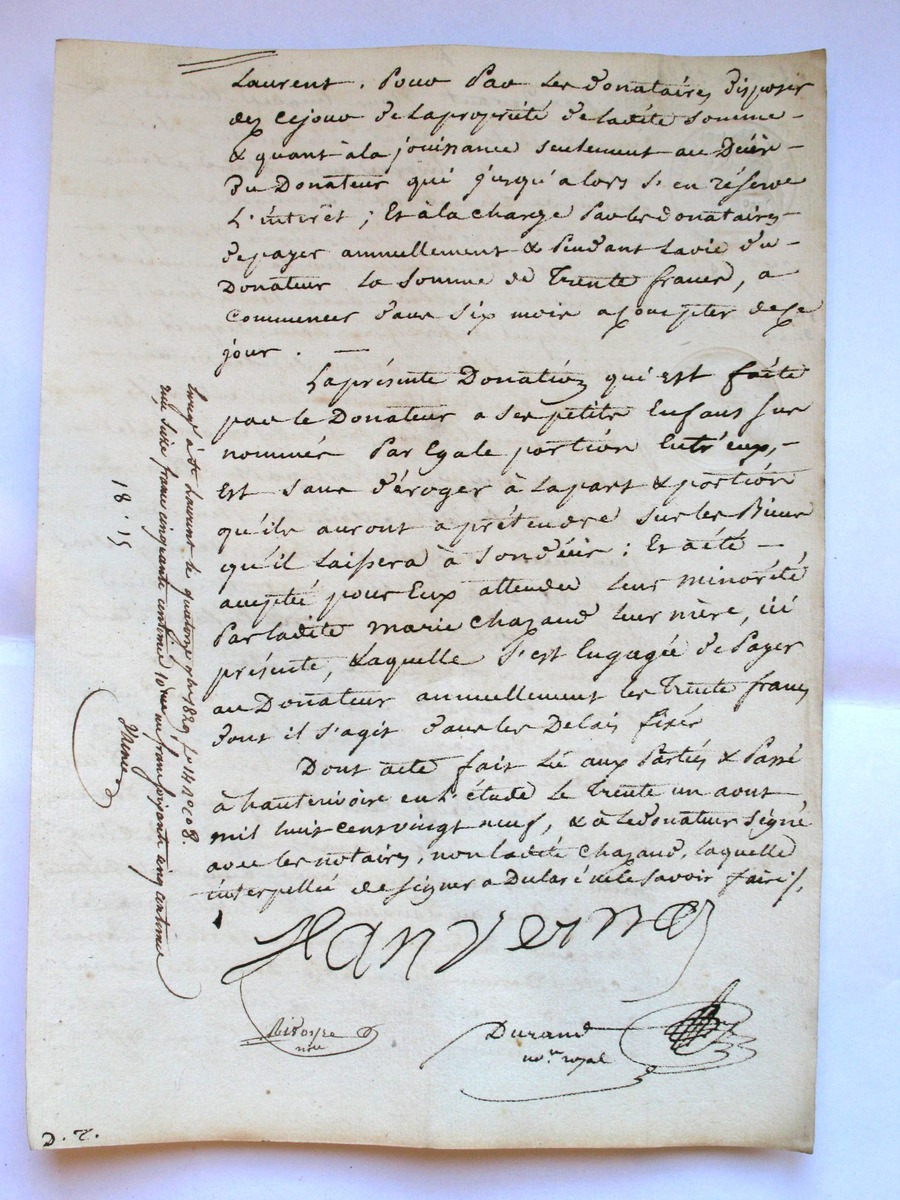 Laurent. Pour Par Les donataires disposer
dez cejour de lapropriété de ladite somme -
& quant à la jouissance seulement au Décès -
Du Donateur qui jusqu'alors s'en réserve
L'intérêt ; Et à la charge Par les donataires -
de payer annuellement & Pendant la vie du -
Donateur La Somme de Trente francs, a
Commencer dans six mois a compter de ce
jour. -
La présente Donation qui est faite
par le Donateur a ses petits Enfans sus
nommés Par Egale portion Entr'eux, -
Est sans déroger à la part & portion
qu'ils auront a prétendre sur les Biens
qu'il laissera à son décès : Et a été -
accepté pour Eux attendu leur minorité
Par ladite marie chazaud leur mère, ici
présente, & laquelle s'est Engagée de Payer
au Donateur annuellement les Trente francs
dont il s'agit dans les Délais fixés
Dont acte fait Lû aux Parties & Passé
à hauterivoire en l'étude Le Trente un aout
mil huit cent vingt neuf, & a le donateur signé
avec les notaires, non ladite chazaud, laquelle
interpellée de signer a Déclaré ne le savoir faire ./.
Jean Verne
not.re
Durand
no.re royal
à St Laurent le quatorze 7bre 1829, f.o 14 r.o c 8.
reçu seize francs cinquante centimes 10me un franc soixante cinq centimes
18.15
D. T.